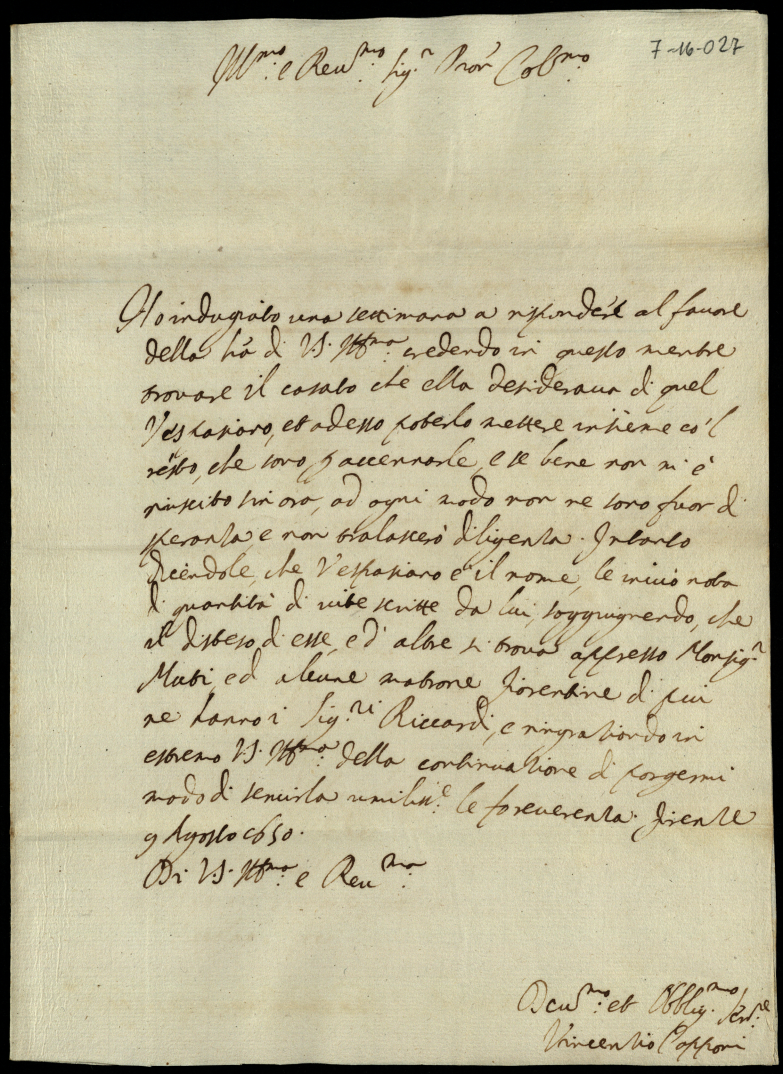 7-16-027
Ill.mo e Reu.mo Sig.r Pron' Col.mo
Ho indugiato una settimana a rispondere al fauore
della l'ra di V.S. Ill.ma credendo in questo mentre
trouare il casato che ella desideraua di quel
Vespasiano, et adesso poterlo mettere insieme co'l
resto, che sono p accennarle, e se bene non mi è
riuscito sin ora, ad ogni modo non ne sono fuor di
speranza e non tralascerò diligenza. Intanto
dicendole, che Vespasiano è il nome, le inuio nota
di quantità di uite scritte da lui, soggiugnendo, che
il disteso di esse, ed' altre si troua appresso Monsig.r
Muti, ed alcune matrone fiorentine di più
ne hanno i Sig.ri Riccardi, e ringratiando in
estremo V.S. Ill.ma della continuatione di porgermi
modo di seruirla umiliss.e le fo reuerenza. Firenze
9 Agosto 1650.
Di V.S. Ill.ma e Reu.ma
Deu.mo et Obblig.mo Ser.re
Vincenzio Capponi